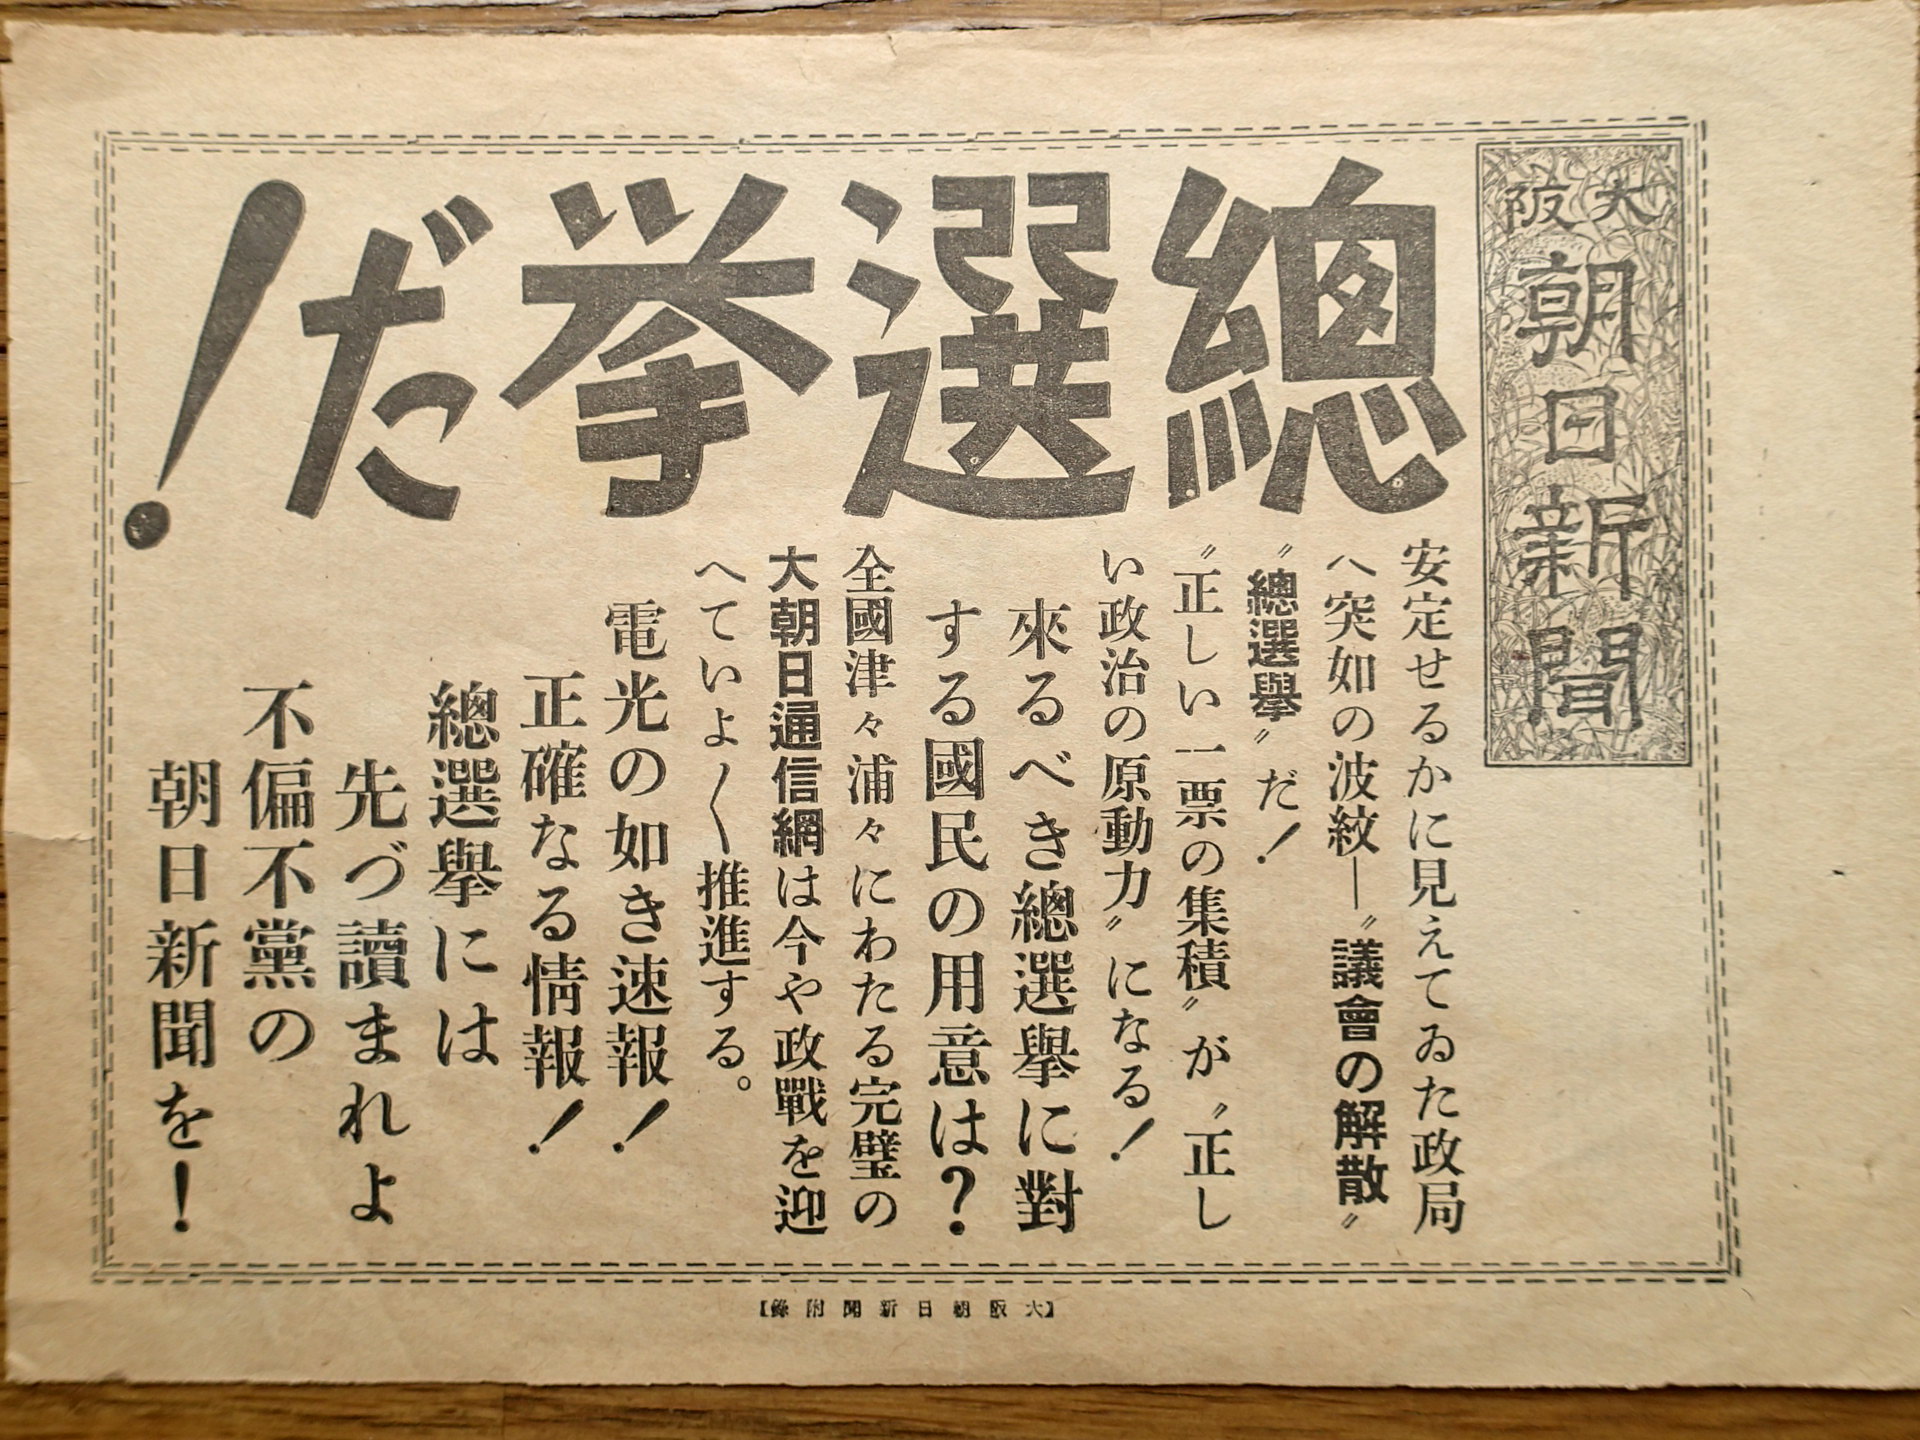 大阪
朝日新聞
總選挙だ!
安定せるかに見えてゐた政局
へ突如の波紋―〝議會の解散〟
〝總選擧〟だ!
〝正しい一票の集積〟が〝正し
い政治の原動力〟になる!
來るべき總選擧に對
する國民の用意は?
全國津々浦々にわたる完璧の
大朝日通信網は今や政戰を迎
へていよ〱推進する。
電光の如き速報!
正確なる情報!
總選擧には
先づ讀まれよ
不偏不黨の
朝日新聞を!
【大阪朝日新聞附錄】